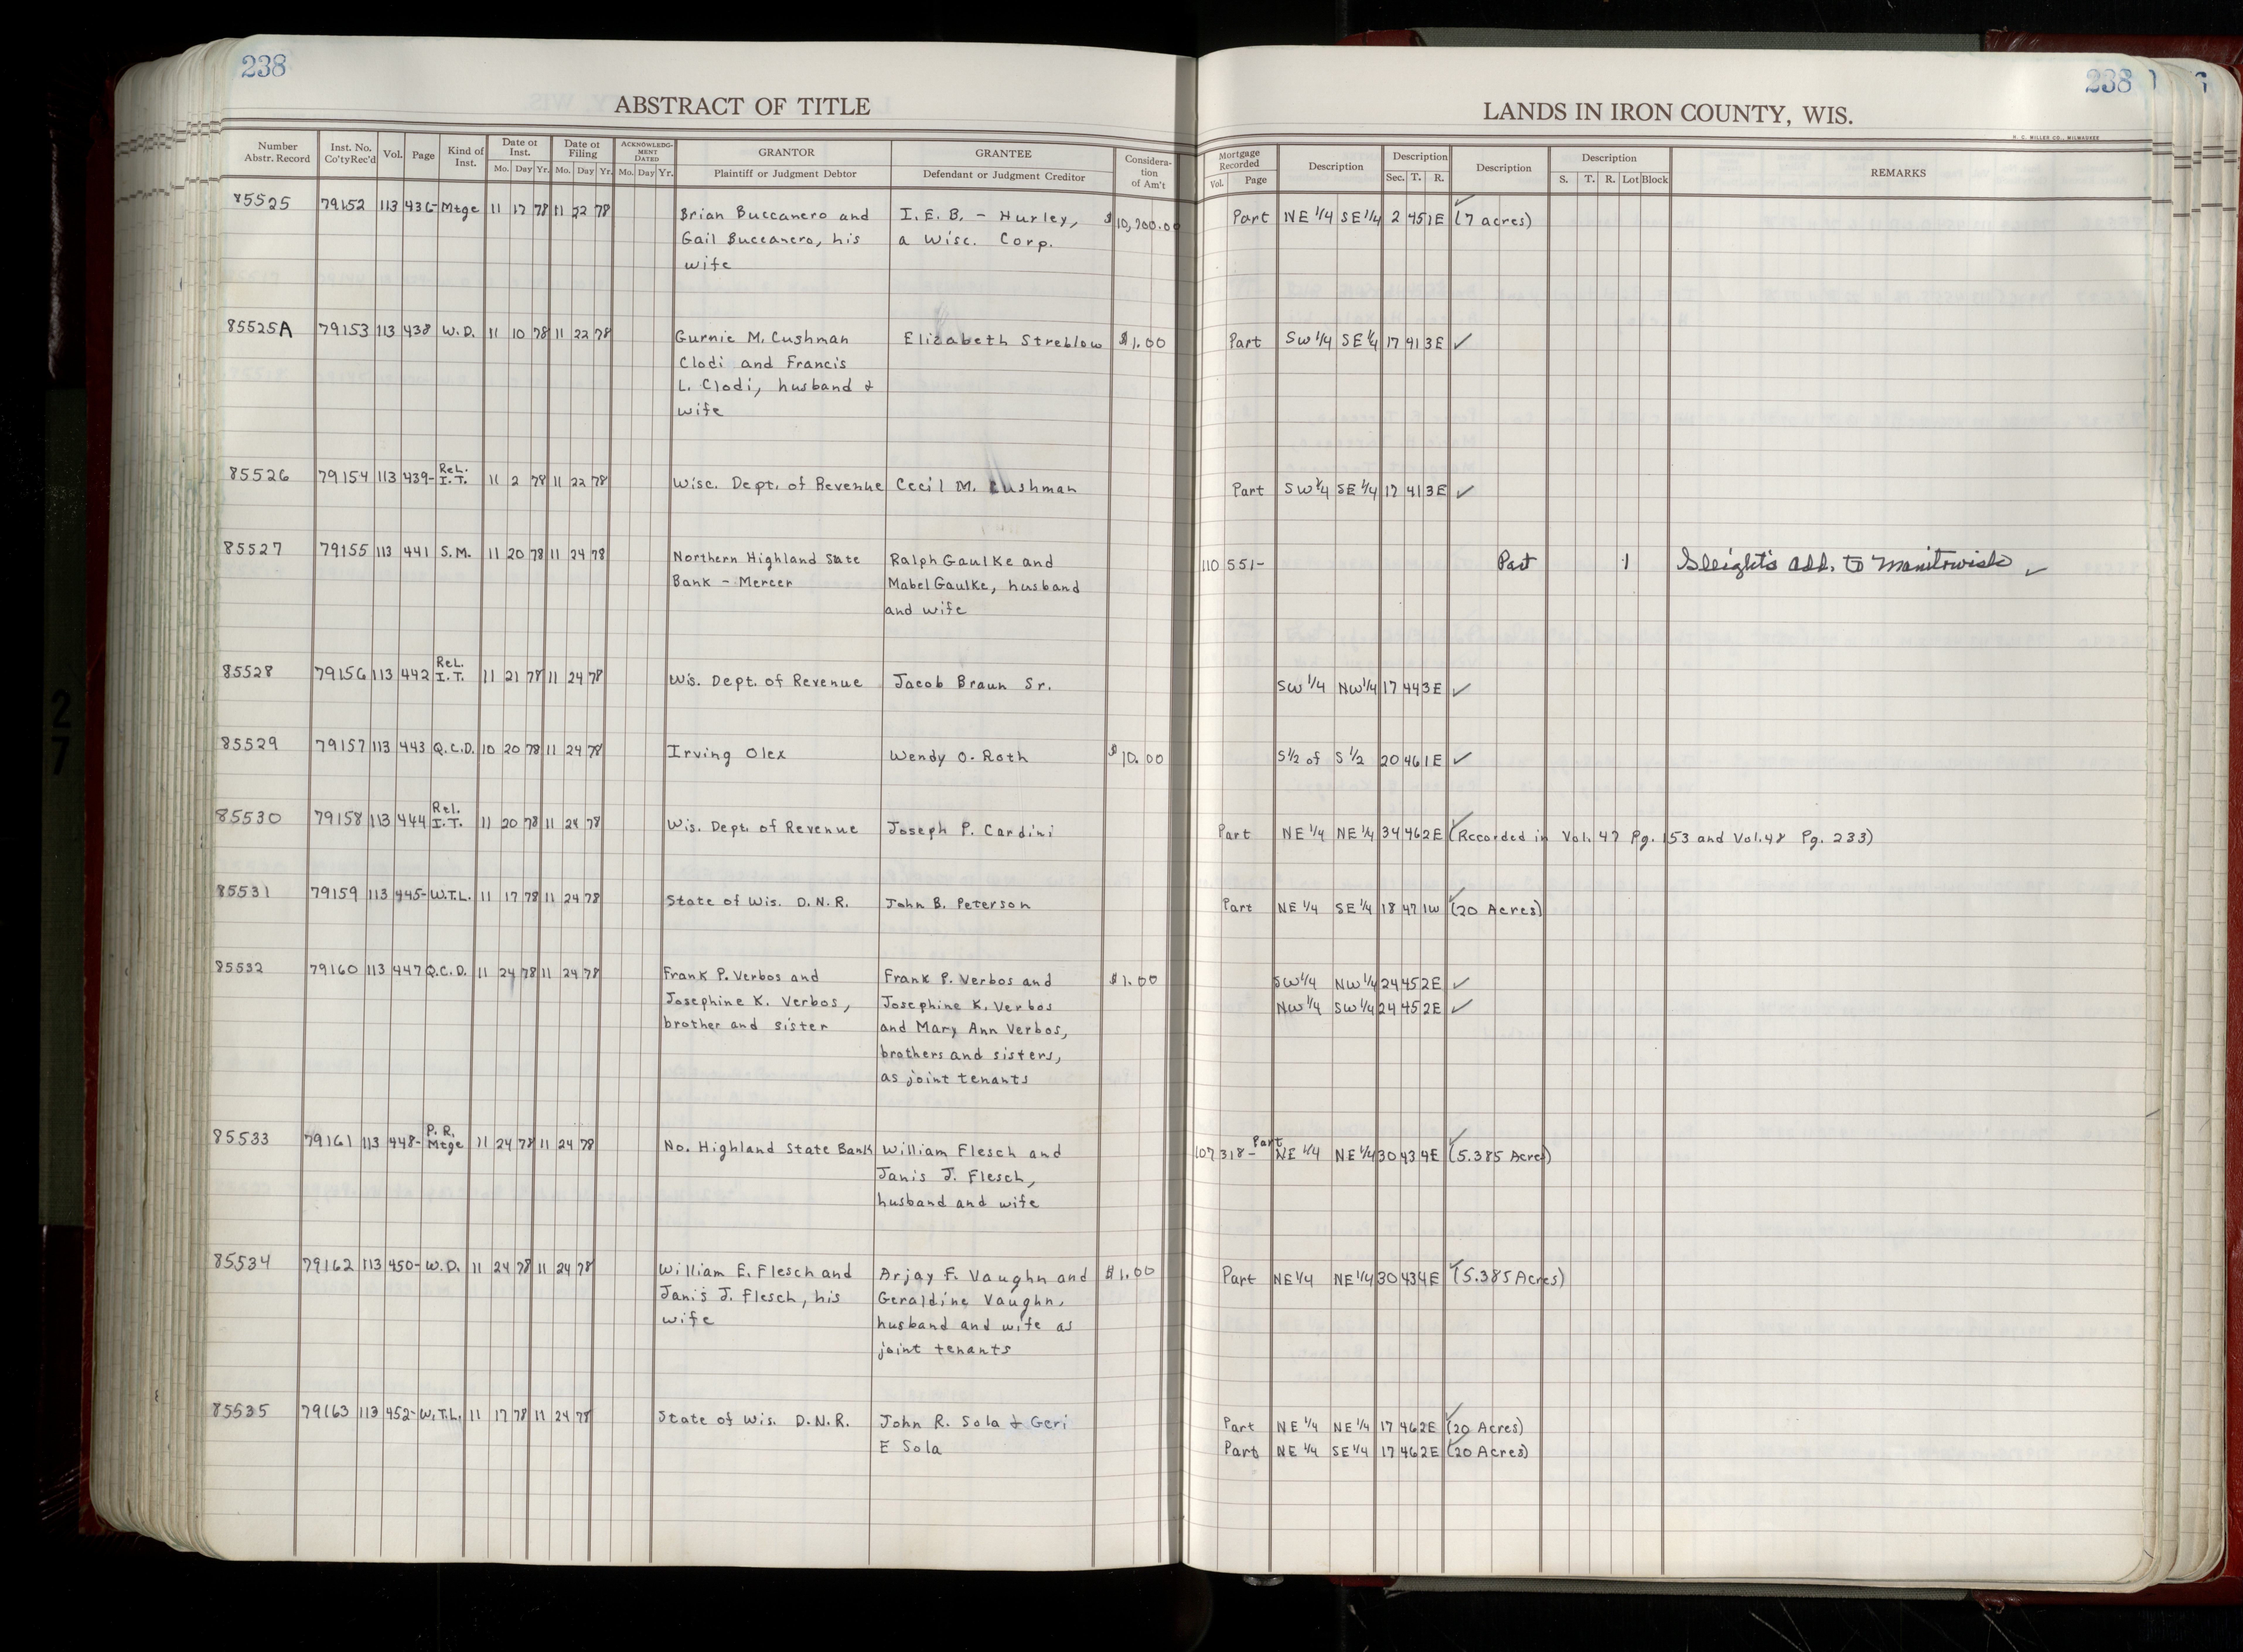 238
ABSTRACT OF TITLE
Number Abstr. Record Inst. No. Co'tyRec'd Vol. Page Kind of Inst. Date of Inst. Mo. Day Yr. Date of Filing Mo. Day Yr. ACKNOWLEDGMENT DATED Mo. Day Yr. GRANTOR Plaintiff or Judgment Debtor GRANTEE Defendant or Judgment Creditor Consideration of Am't
238
LANDS IN IRON COUNTY, WIS.
H. C. MILLER CO., MILWAUKEE
Mortgage Recorded Vol. Page Description Description Sec. T. R. Description Description S. T. R. Lot Block REMARKS
85525 79152 113 436- Mtge 11 17 78 11 22 78 Brian Buccanero and I.E.B. - Hurley, $10,700.00 Part NE 1/4 SE 1/4 2 45 1E (7 acres) ✓
Gail Buccanero, his a Wisc. Corp.
wife
85525A 79153 113 438 W.D. 11 10 78 11 22 78 Gurnie M. Cushman Elizabeth Streblow $1.00 Part SW 1/4 SE 1/4 17 41 3E ✓
Clodi and Francis
L. Clodi, husband &
wife
85526 79154 113 439- Rel. I.T. 11 2 78 11 22 78 Wisc. Dept. of Revenue Cecil M. Cushman Part SW 1/4 SE 1/4 17 41 3E ✓
85527 79155 113 441 S.M. 11 20 78 11 24 78 Northern Highland State Ralph Gaulke and 110 551- Part 1 Sleight's Add. to Manitowish ✓
Bank - Mercer Mabel Gaulke, husband
and wife
85528 79156 113 442 Rel. I.T. 11 21 78 11 24 78 Wis. Dept. of Revenue Jacob Braun Sr. SW 1/4 NW 1/4 17 44 3E ✓
85529 79157 113 443 Q.C.D. 10 20 78 11 24 78 Irving Olex Wendy O. Roth $10.00 S 1/2 of S 1/2 20 46 1E ✓
85530 79158 113 444 Rel. I.T. 11 20 78 11 24 78 Wis. Dept. of Revenue Joseph P. Cardini Part NE 1/4 NE 1/4 34 46 2E ✓ (Recorded in Vol. 47 Pg. 153 and Vol. 48 Pg. 233)
85531 79159 113 445- W.T.L. 11 17 78 11 24 78 State of Wis. D.N.R. John B. Peterson Part NE 1/4 SE 1/4 18 47 1W ✓ (20 Acres)
85532 79160 113 447 Q.C.D. 11 24 78 11 24 78 Frank P. Verbos and Frank P. Verbos and $1.00 SW 1/4 NW 1/4 24 45 2E ✓
Josephine K. Verbos, Josephine K. Verbos NW 1/4 SW 1/4 24 45 2E ✓
brother and sister and Mary Ann Verbos,
brothers and sisters,
as joint tenants
85533 79161 113 448- P.R. Mtge 11 24 78 11 24 78 No. Highland State Bank William Flesch and 107 318- Part NE 1/4 NE 1/4 30 43 4E ✓ (5.385 Acres)
Janis J. Flesch,
husband and wife
85534 79162 113 450- W.D. 11 24 78 11 24 78 William E. Flesch and Arjay F. Vaughn and $1.00 Part NE 1/4 NE 1/4 30 43 4E ✓ (5.385 Acres)
Janis J. Flesch, his Geraldine Vaughn,
wife husband and wife as
joint tenants
85535 79163 113 452- W.T.L. 11 17 78 11 24 78 State of Wis. D.N.R. John R. Sola & Geri Part NE 1/4 NE 1/4 17 46 2E ✓ (20 Acres)
E Sola Part NE 1/4 SE 1/4 17 46 2E ✓ (20 Acres)